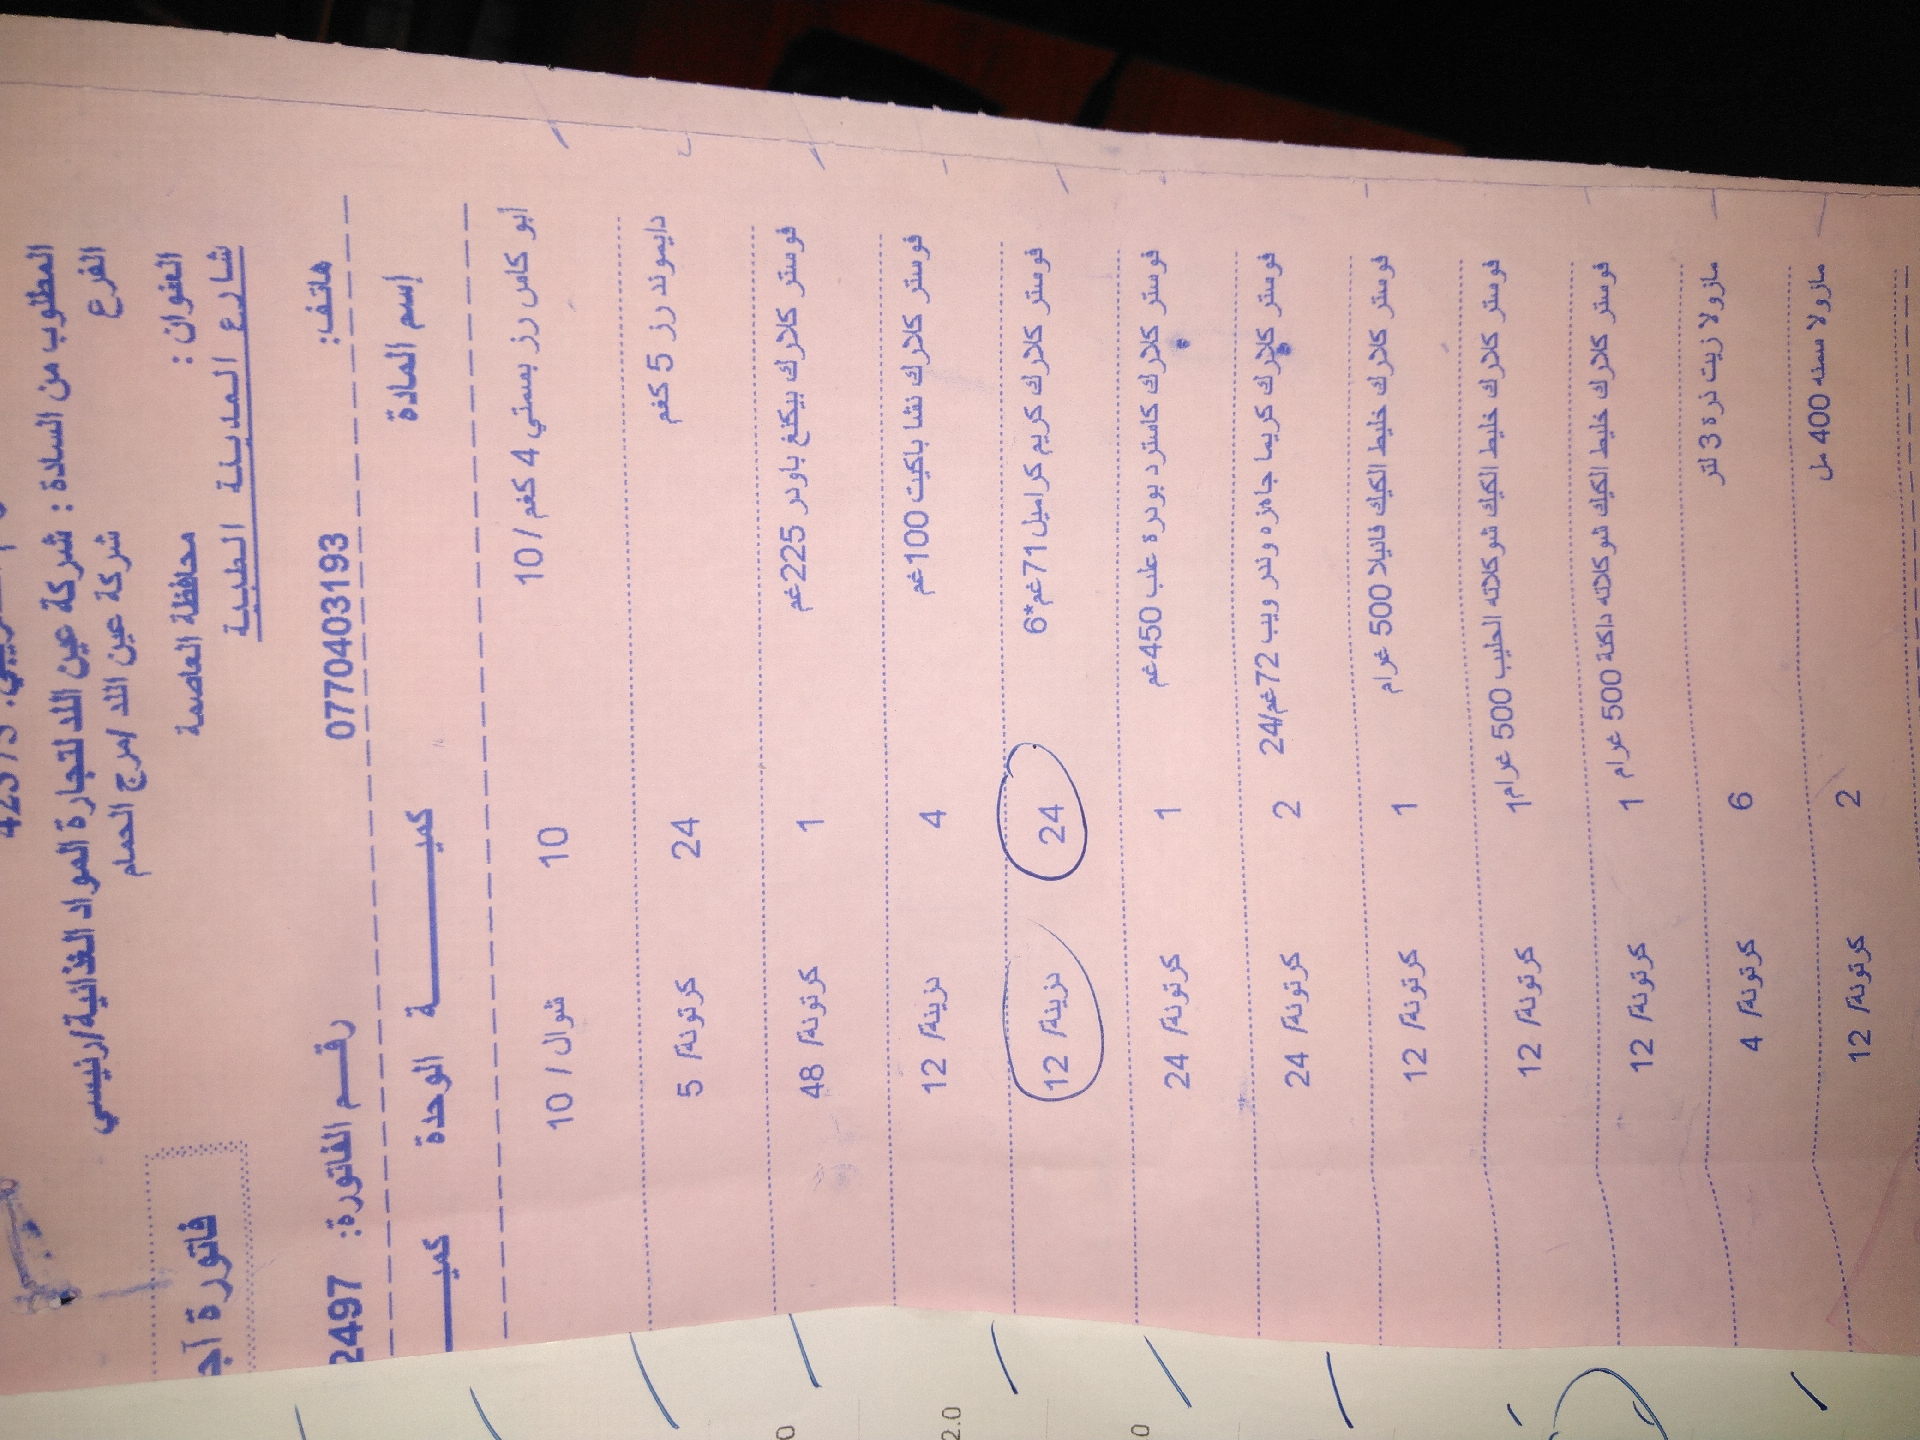 المطلوب من السادة : شركة عين اللد لتجارة المواد الغذائية/رئيسي
الفرع شركة عين اللد /مرج الحمام
العنوان : محافظة العاصمة
شارع المدينة الطبية
فاتورة آجـ
هاتف: 0770403193 رقم الفاتورة: 2497
إسم المادة كميـــــــة الوحدة كميـــ
أبو كاس رز بسمتي 4 كغم / 10 10 شوال / 10
دايموند رز 5 كغم 24 كرتونة/ 5
فوستر كلارك بيكنغ باودر 225غم 1 كرتونة/ 48
فوستر كلارك نشا باكيت 100غم 4 دزينة/ 12
فوستر كلارك كريم كراميل 71غم*6 24 دزينة/ 12
فوستر كلارك كاسترد بودرة علب 450غم 1 كرتونة/ 24
فوستر كلارك كريما جاهزه وندر ويب 72غم/24 2 كرتونة/ 24
فوستر كلارك خليط الكيك فانيلا 500 غرام 1 كرتونة/ 12
فوستر كلارك خليط الكيك شوكلاته الحليب 500 غرام 1 كرتونة/ 12
فوستر كلارك خليط الكيك شوكلاته داكنة 500 غرام 1 كرتونة/ 12
مازولا زيت ذرة 3 لتر 6 كرتونة/ 4
مازولا سمنه 400 مل 2 كرتونة/ 12